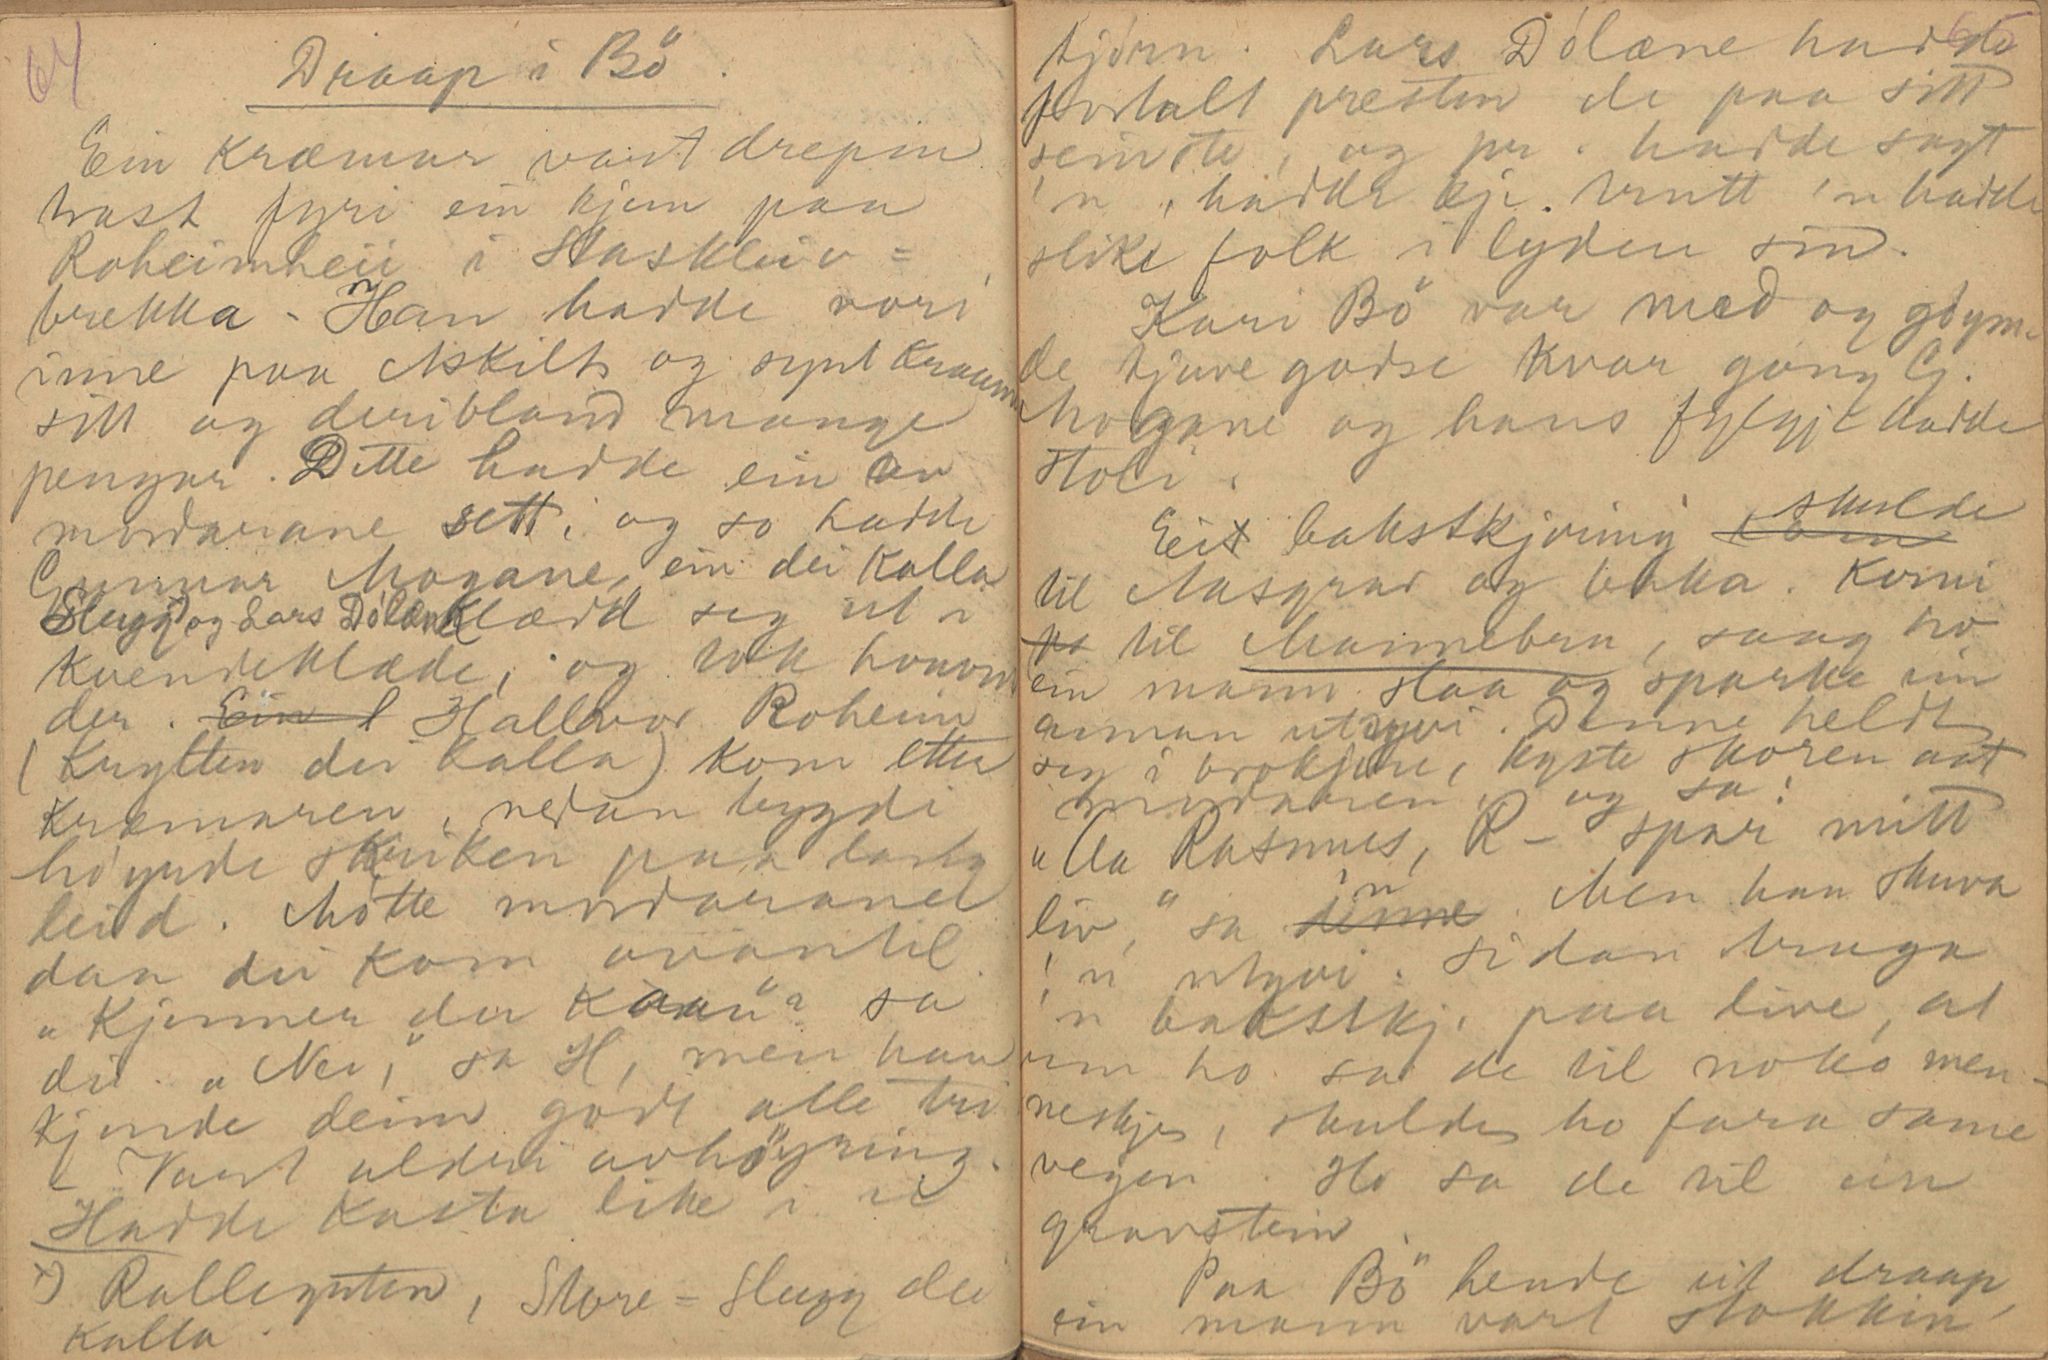 64
Draap i Bö.
Ein kræmar vart drepin
nast fyri ein kjem paa
Roheimheii i Slaskleiv=
brekka - Han hadde vori
inne paa Askilt og synt kraame
sitt og deribland mange
pengar. Dette hadde ein av
mordarane sett, og so hadde
Gunnar Mogane, ein dei kalla
Slugg ˣ⁾ og Lars Dölæne klædd seg ut i
kvendeklæde, og tok honom
der. Ein l Hallvor Roheim
(Krylten dei kalla) kom etter
kræmaren, nedan bygdi
höyrde skriken paa lang
leid. Mötte mordarane
daa dei kom ovantil.
"Kjenner du kaan"? sa
dei. "Nei," sa H, men han
kjende deim godt alle tri
- Vart aldri avhöyring.
Hadde kasta like i ei
x) Ralleguten, Store=Slugg dei
kalla.
65
tjörn. Lars Dölæne hadde
fortalt presten de paa sitt
seinste, og pr. hadde sagt
'n, hadde kje. trutt 'n hadde
slike folk i lyden sin.
Kari Bö var med og göym-
de tjuvegodse kvar gong G.
Mogane og hans fylgje hadde
stoli.
Eit bakstkjering kom skulde
til Aasgrav og baka. Komi
ho til Mannebru, saag ho
ein mann staa og sparka ein
annan utyvi. Denne heldt
seg i brokjine, kyste skoren aat
mordaren, og sa:
"Aa Rasmus, R- spar mitt
liv," sa denne 'n. Men han skuva
'n utyvi. Sidan truga
'n bakstkj. paa live, at
um ho sa de til noko men-
neskje, skulde ho fara same
vegen. Ho sa de til ein
gravstein.
Paa Bö hende eit draap,
ein mann vart stokkin